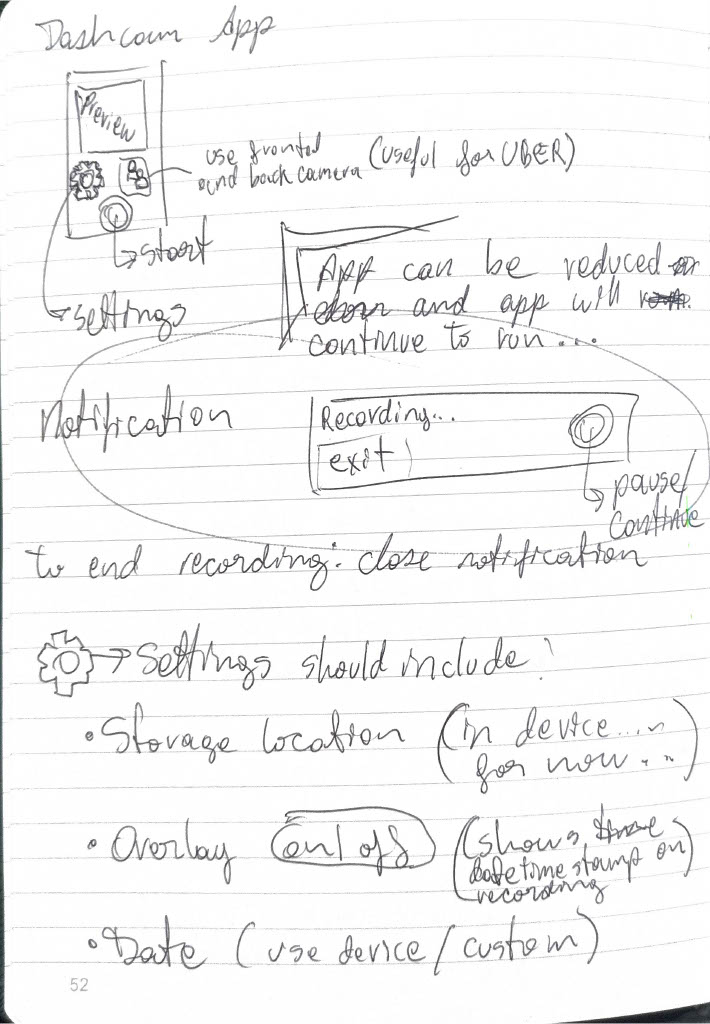 Dashcam App
Preview
use frontal
and back camera
(useful for UBER)
start
settings
App can be reduced
and app will
continue to run...
Notification
Recording...
exit
pause/
continue
to end recording: close notification
settings should include:
• Storage location (in device....
for now...)
• Overlay (on/off) (shows
datetime stamp on
recording)
• Date (use device/custom)
52